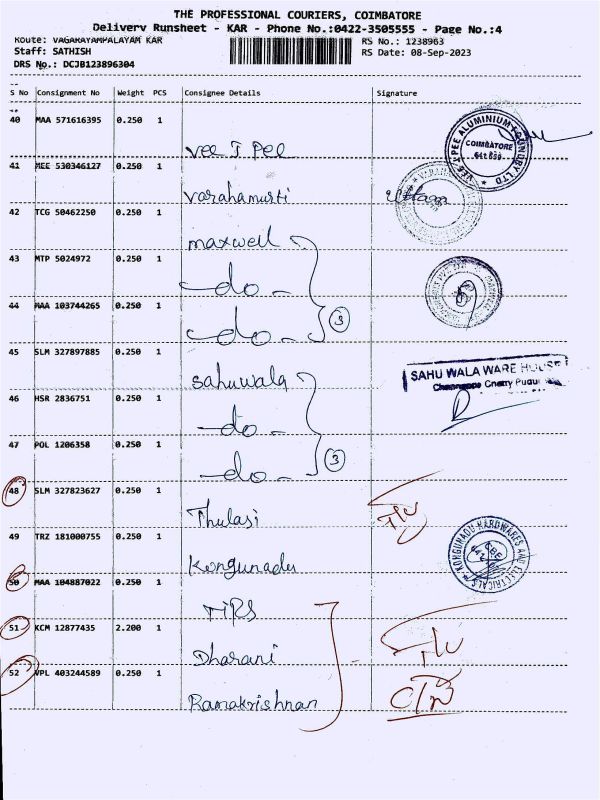 THE PROFESSIONAL COURIERS, COIMBATORE
Delivery Runsheet - KAR - Phone No.:0422-3505555 - Page No.:4
Route: VAGARAYAMPALAYAM KAR
RS No.: 1238963
Staff: SATHISH
RS Date: 08-Sep-2023
DRS No.: DCJB123896304
S No Consignment No Weight PCS Consignee Details Signature
40 MAA 571616395 0.250 1
Vee T Pee
VEE T PEE ALUMINIUM FOUNDRY LTD
COIMBATORE
641 659
41 MEE 530346127 0.250 1
Varahamurti
42 TCG 50462250 0.250 1
maxwell
43 MTP 5024972 0.250 1
-do-
44 MAA 103744265 0.250 1
-do-
3
45 SLM 327897885 0.250 1
Sahuwala
SAHU WALA WARE HOUSE
46 HSR 2836751 0.250 1
-do-
47 POL 1206358 0.250 1
-do-
3
48 SLM 327823627 0.250 1
Thulasi
49 TRZ 181000755 0.250 1
Kongunadu
KONGUNADU HARDWARES AND ELECTRICALS
CBE
50 MAA 104887022 0.250 1
51 KCM 12877435 2.200 1
Dharani
52 VPL 403244589 0.250 1
Ramakrishnan